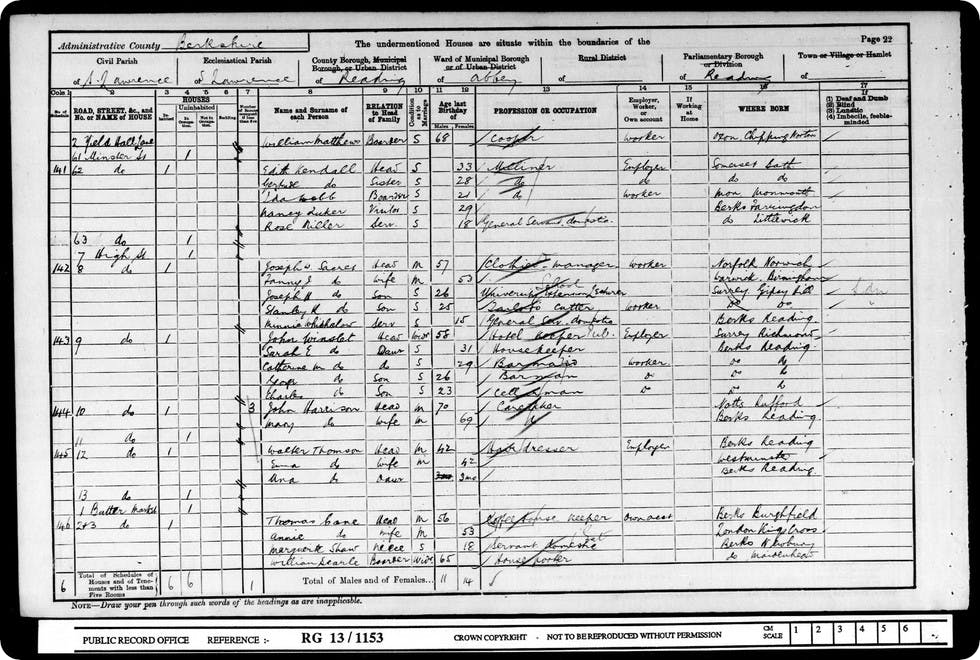 Administrative County Berkshire
The undermentioned Houses are situate within the boundaries of the
Page 22
Civil Parish
of St Lawrence
Ecclesiastical Parish
of St Lawrence
County Borough, Municipal Borough, or Urban District
of Reading
Ward of Municipal Borough or of Urban District
of Abbey
Rural District
of
Parliamentary Borough or Division
of Reading
Town or Village or Hamlet
of
Cols. 1 2 3 4 5 6 7 8 9 10 11 12 13 14 15 16 17
No. of ROAD, STREET, &c., and No. or NAME of HOUSE
HOUSES Inhabited Uninhabited In Occupation Not in Occupation Building
Name and Surname of each Person
RELATION to Head of Family
Condition as to Marriage
Age last Birthday of Males Females
PROFESSION OR OCCUPATION
Employer, Worker, or Own account
If Working at Home
WHERE BORN
If (1) Deaf and Dumb (2) Blind (3) Lunatic (4) Imbecile, feeble-minded
2 Yield Hall Lane William Matthews Boarder S 68 Cooper Worker Oxon Chipping Norton
61 Minster St 1
141 62 do 1 Edith Kendall Head S 33 Milliner Employer Somerset Bath
Gertrude do Sister S 28 do do do do
Ida Webb Boarder S 21 do Worker Mon Monmouth
Nancy Luker Visitor S 29 Berks Farringdon
Rose Miller Serv. S 18 General Servant domestic do Littlewick
63 do 1
7 High St 1
142 8 do 1 Joseph W. Sacret Head M 57 Clothier manager Worker Norfolk Norwich
Fanny E do Wife M 53 Warwick Birmingham
Joseph H do Son S 26 University Extension School Lecturer Surrey Gipsy Hill
Stanley R do Son S 25 cutter Worker do do
Minnie Whichelow Serv S 15 General Serv. domestic Berks Reading
143 9 do 1 John Winslet Head Widr 58 Hotel Keeper Pub. Employer Surrey Richmond
Sarah E do Daur S 31 Housekeeper Berks Reading
Catherine M do do S 29 Barmaid Worker do do
George do Son S 26 Barman do do do
Charles do Son S 23 Cellarman do do do
144 10 do 1 3 John Harrison Head M 70 Caretaker Notts Rufford
Mary do Wife M 69 Berks Reading
11 do 1
145 12 do 1 Walter Thomson Head M 42 Hairdresser Employer Berks Reading
Emma do Wife M 42 Westminster
Ana do Daur 3mo Berks Reading
13 do 1
1 Butter Market 1
146 2+3 do 1 Thomas Cane Head M 56 Coffee House Keeper Own acct Berks Burghfield
Annie do Wife M 53 London Kings Cross
Marguerite Shaw Niece S 18 Servant Domestic Berks Newbury
William Searle Boarder Widr 65 House porter do Maidenhead
6 Total of Schedules of Houses and of Tenements with less than Five Rooms 6 6 1 Total of Males and of Females... 11 14
NOTE—Draw your pen through such words of the headings as are inapplicable.
PUBLIC RECORD OFFICE REFERENCE :- RG 13/1153 CROWN COPYRIGHT - NOT TO BE REPRODUCED WITHOUT PERMISSION CM SCALE 1 2 3 4 5 6